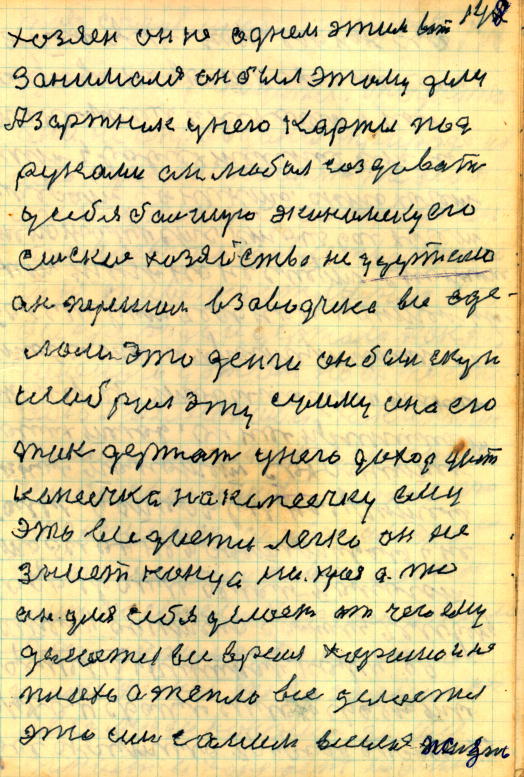 142
хозяен он не однем этим вот
занимался он был этому делу
Азартник у него карты под
руками он любол создовать
у себя большую экиномеку его
сельское хозяйство не удертело
он перешол в заводчика все зде-
лали это денги он был скуп
и набрал эту сумму она его
так держат у него доход идет
копеечка на копеечку ему
это все дается легко он не
знает конца ни края а то
он для себя делает от чего ему
делается все время хорошо и не
плохо а тепло все делается
это им самим вселя жизнь